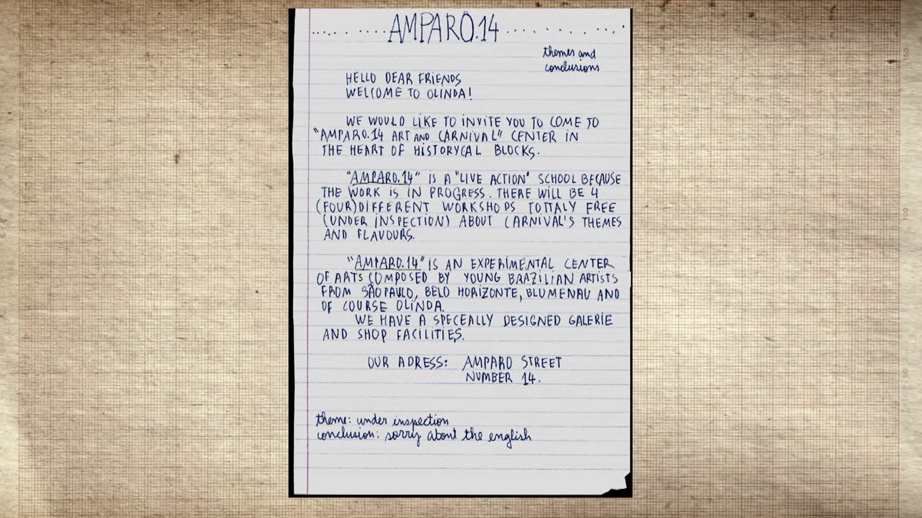 AMPARO.14
themes and
conclusions
HELLO DEAR FRIENDS
WELCOME TO OLINDA!
WE WOULD LIKE TO INVITE YOU TO COME TO
"AMPARO.14 ART AND CARNIVAL" CENTER IN
THE HEART OF HISTORYCAL BLOCKS.
"AMPARO.14" IS A "LIVE ACTION" SCHOOL BECAUSE
THE WORK IS IN PROGRESS. THERE WILL BE 4
(FOUR) DIFFERENT WORKSHOPS TOTTALY FREE
(UNDER INSPECTION) ABOUT CARNIVAL'S THEMES
AND FLAVOURS.
"AMPARO.14" IS AN EXPERIMENTAL CENTER
OF ARTS COMPOSED BY YOUNG BRAZILIAN ARTISTS
FROM SÃO PAULO, BELO HORIZONTE, BLUMENAU AND
OF COURSE OLINDA.
WE HAVE A SPECEALLY DESIGNED GALERIE
AND SHOP FACILITIES.
OUR ADRESS: AMPARO STREET
NUMBER 14.
theme: under inspection
conclusion: sorry about the english